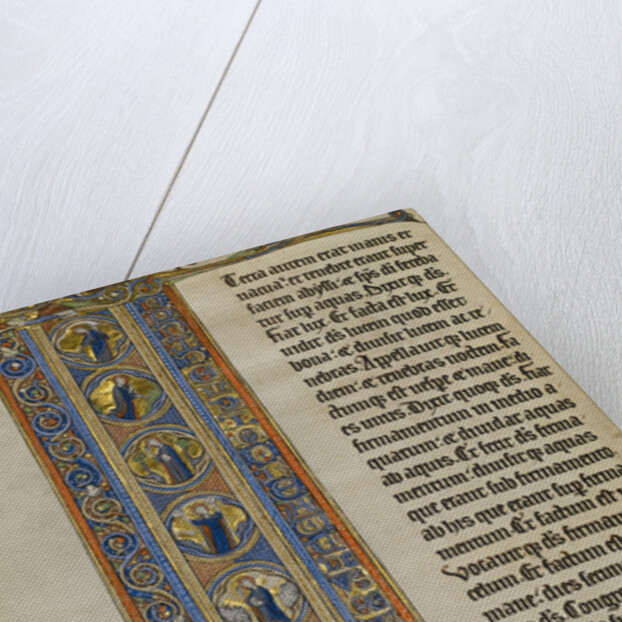 Terra autem erat inanis et
uacua: et tenebre erant super
faciem abyssi: et sp̄s di fereba
tur sup aquas. Dixit q; ds̄.
Fiat lux. Et facta est lux. Et
uidit ds̄ lucem quod esset
bona: et diuisit lucem ac te
nebras. Appellauit q; lucem
diem: et tenebras noctem. Fa
ctum q; est uespe et mane: di
es unus. Dixit quoq; ds̄. Fiat
firmamentum in medio a
quarum: et diuidat aquas
ab aquis. Et fecit ds̄ firma
mentum: diuisit q; aquas
que erant sub firmamento.
ab his que erant sup firma
mentum. Et factum est
Vocauit q; ds̄ firmam
celum. Et factum est
mane: dies secun
ds̄. Congre